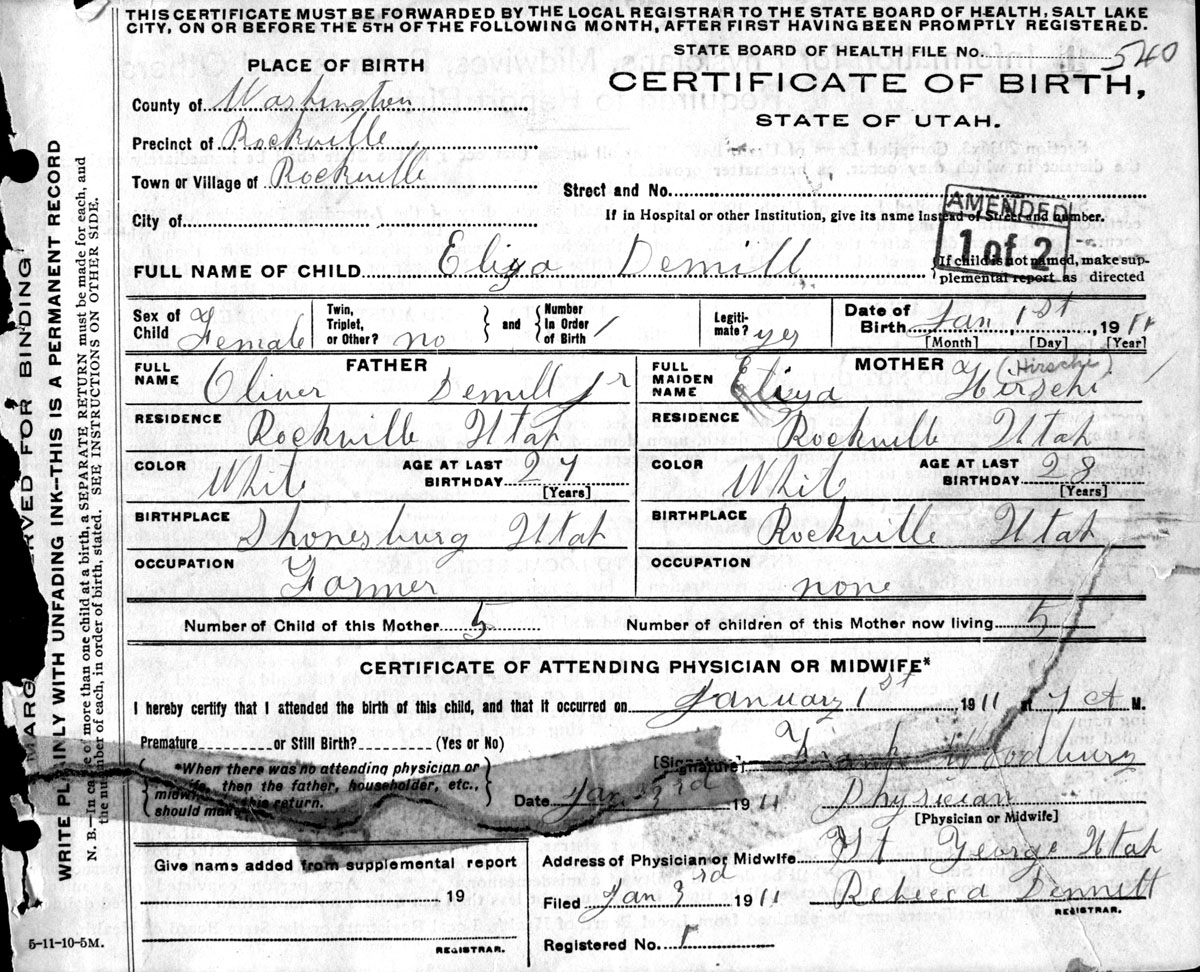 THIS CERTIFICATE MUST BE FORWARDED BY THE LOCAL REGISTRAR TO THE STATE BOARD OF HEALTH, SALT LAKE
CITY, ON OR BEFORE THE 5TH OF THE FOLLOWING MONTH, AFTER FIRST HAVING BEEN PROMPTLY REGISTERED.
STATE BOARD OF HEALTH FILE NO. 540
PLACE OF BIRTH
CERTIFICATE OF BIRTH,
STATE OF UTAH.
County of Washington
Precinct of Rockville
Town or Village of Rockville
Street and No.
City of
If in Hospital or other Institution, give its name Instead of Street and number.
AMENDED
1 of 2
FULL NAME OF CHILD Eliza Demill
If child is not named, make sup-
plemental report as directed
Sex of Child Female
Twin, Triplet, or Other? no
and Number In Order of Birth 1
Legiti- mate? yes
Date of Birth Jan 1st, 1911
[Month] [Day] [Year]
FATHER
FULL NAME Oliver Demill Jr
RESIDENCE Rockville Utah
COLOR White
AGE AT LAST BIRTHDAY 27
[Years]
BIRTHPLACE Shonesburg Utah
OCCUPATION Farmer
MOTHER
FULL MAIDEN NAME Eliza Hirschi (Hirschi)
RESIDENCE Rockville Utah
COLOR White
AGE AT LAST BIRTHDAY 28
[Years]
BIRTHPLACE Rockville Utah
OCCUPATION none
Number of Child of this Mother 5
Number of children of this Mother now living 5
CERTIFICATE OF ATTENDING PHYSICIAN OR MIDWIFE*
I hereby certify that I attended the birth of this child, and that it occurred on January 1st 1911 at 7 a M.
Premature or Still Birth? (Yes or No)
*When there was no attending physician or
midwife, then the father, householder, etc.,
should make this return.
[Signature] Woodbury
Date Jan 3rd 1911
Physician
[Physician or Midwife]
Give name added from supplemental report
19
REGISTRAR.
Address of Physician or Midwife St George Utah
Filed Jan 3rd 1911 Rebecca Dennett
REGISTRAR.
Registered No. 1
5-11-10-5M.
MARG RVED FOR BINDING
WRITE PLAINLY WITH UNFADING INK—THIS IS A PERMANENT RECORD
N. B.—In case of more than one child at a birth a SEPARATE RETURN must be made for each, and
the number of each, in order of birth, stated. SEE INSTRUCTIONS ON OTHER SIDE.